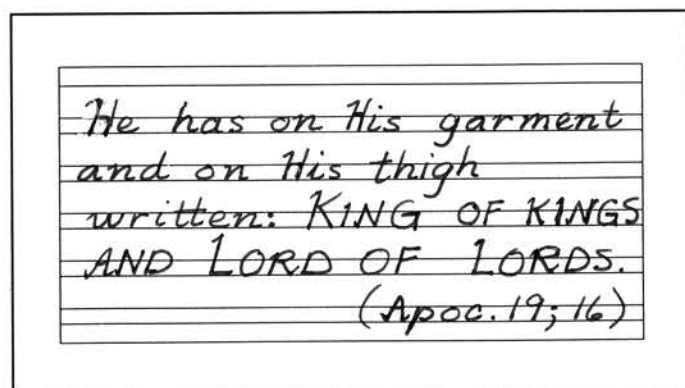 He has on His garment
and on His thigh
written: KING OF KINGS
AND LORD OF LORDS.
(Apoc. 19; 16)